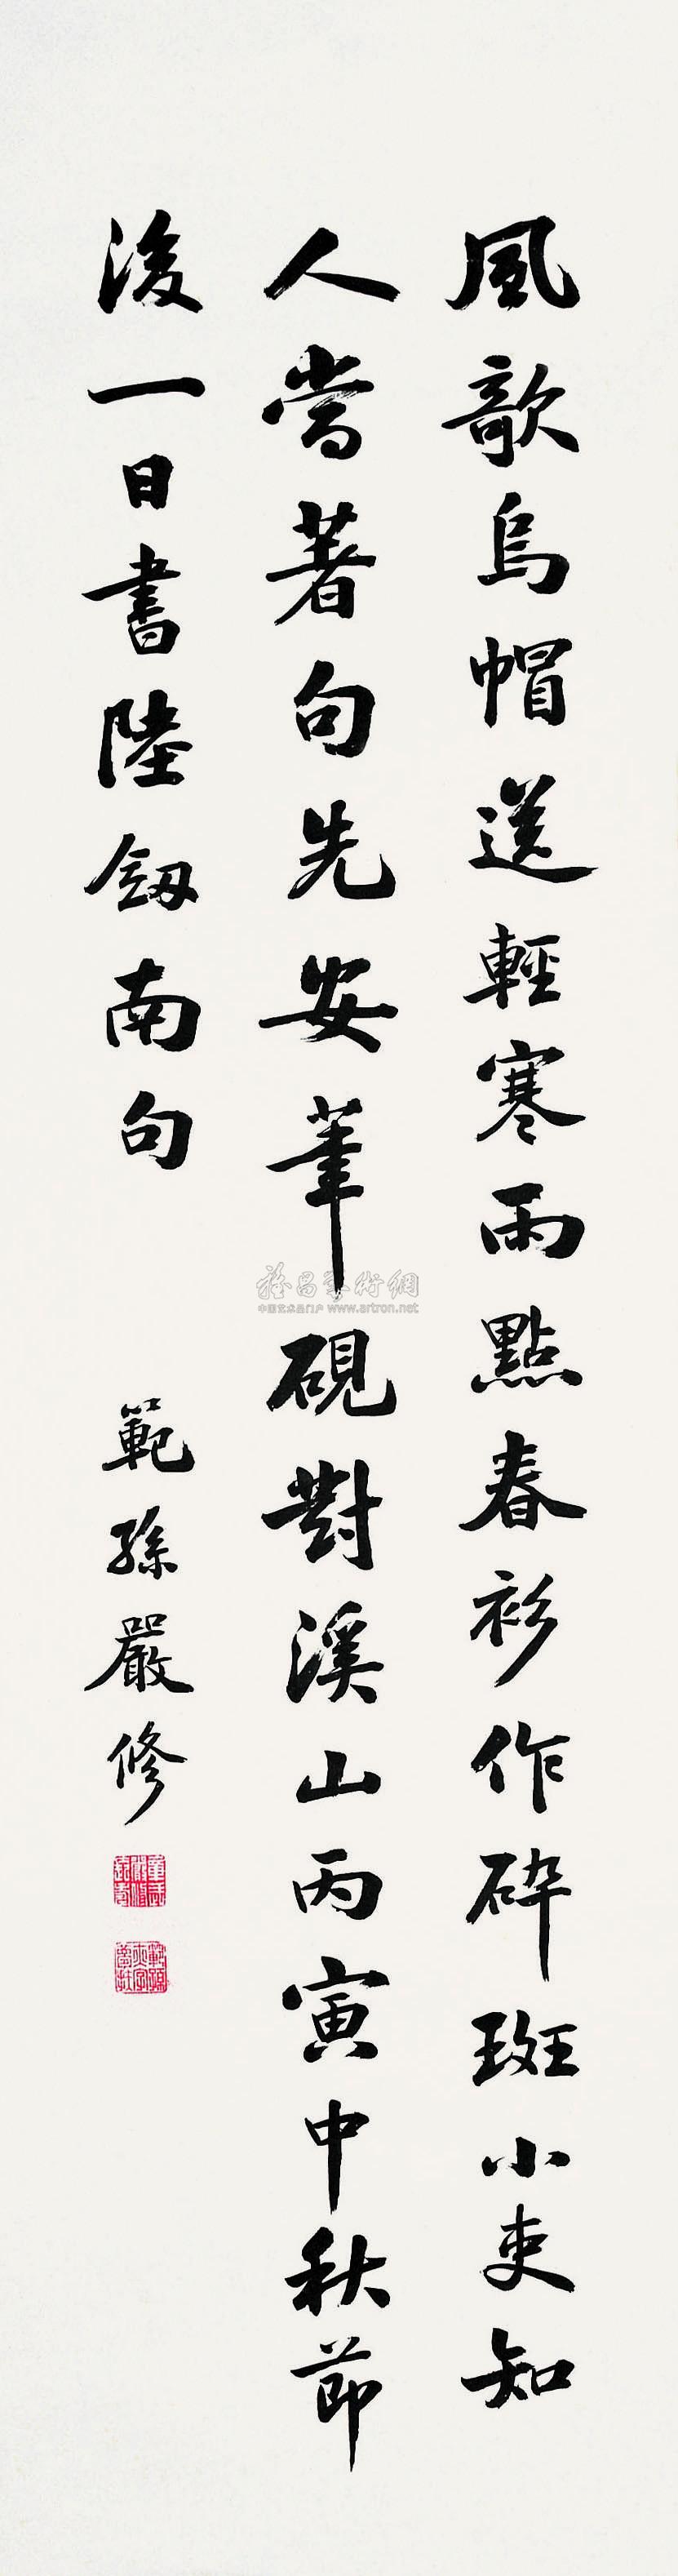 風欹烏帽送輕寒雨點春衫作碎斑小吏知
人當著句先安筆硯對溪山丙寅中秋節
後一日書陸釼南句 範孫嚴修
雅昌藝術網
中国艺术品门户 www.artron.net